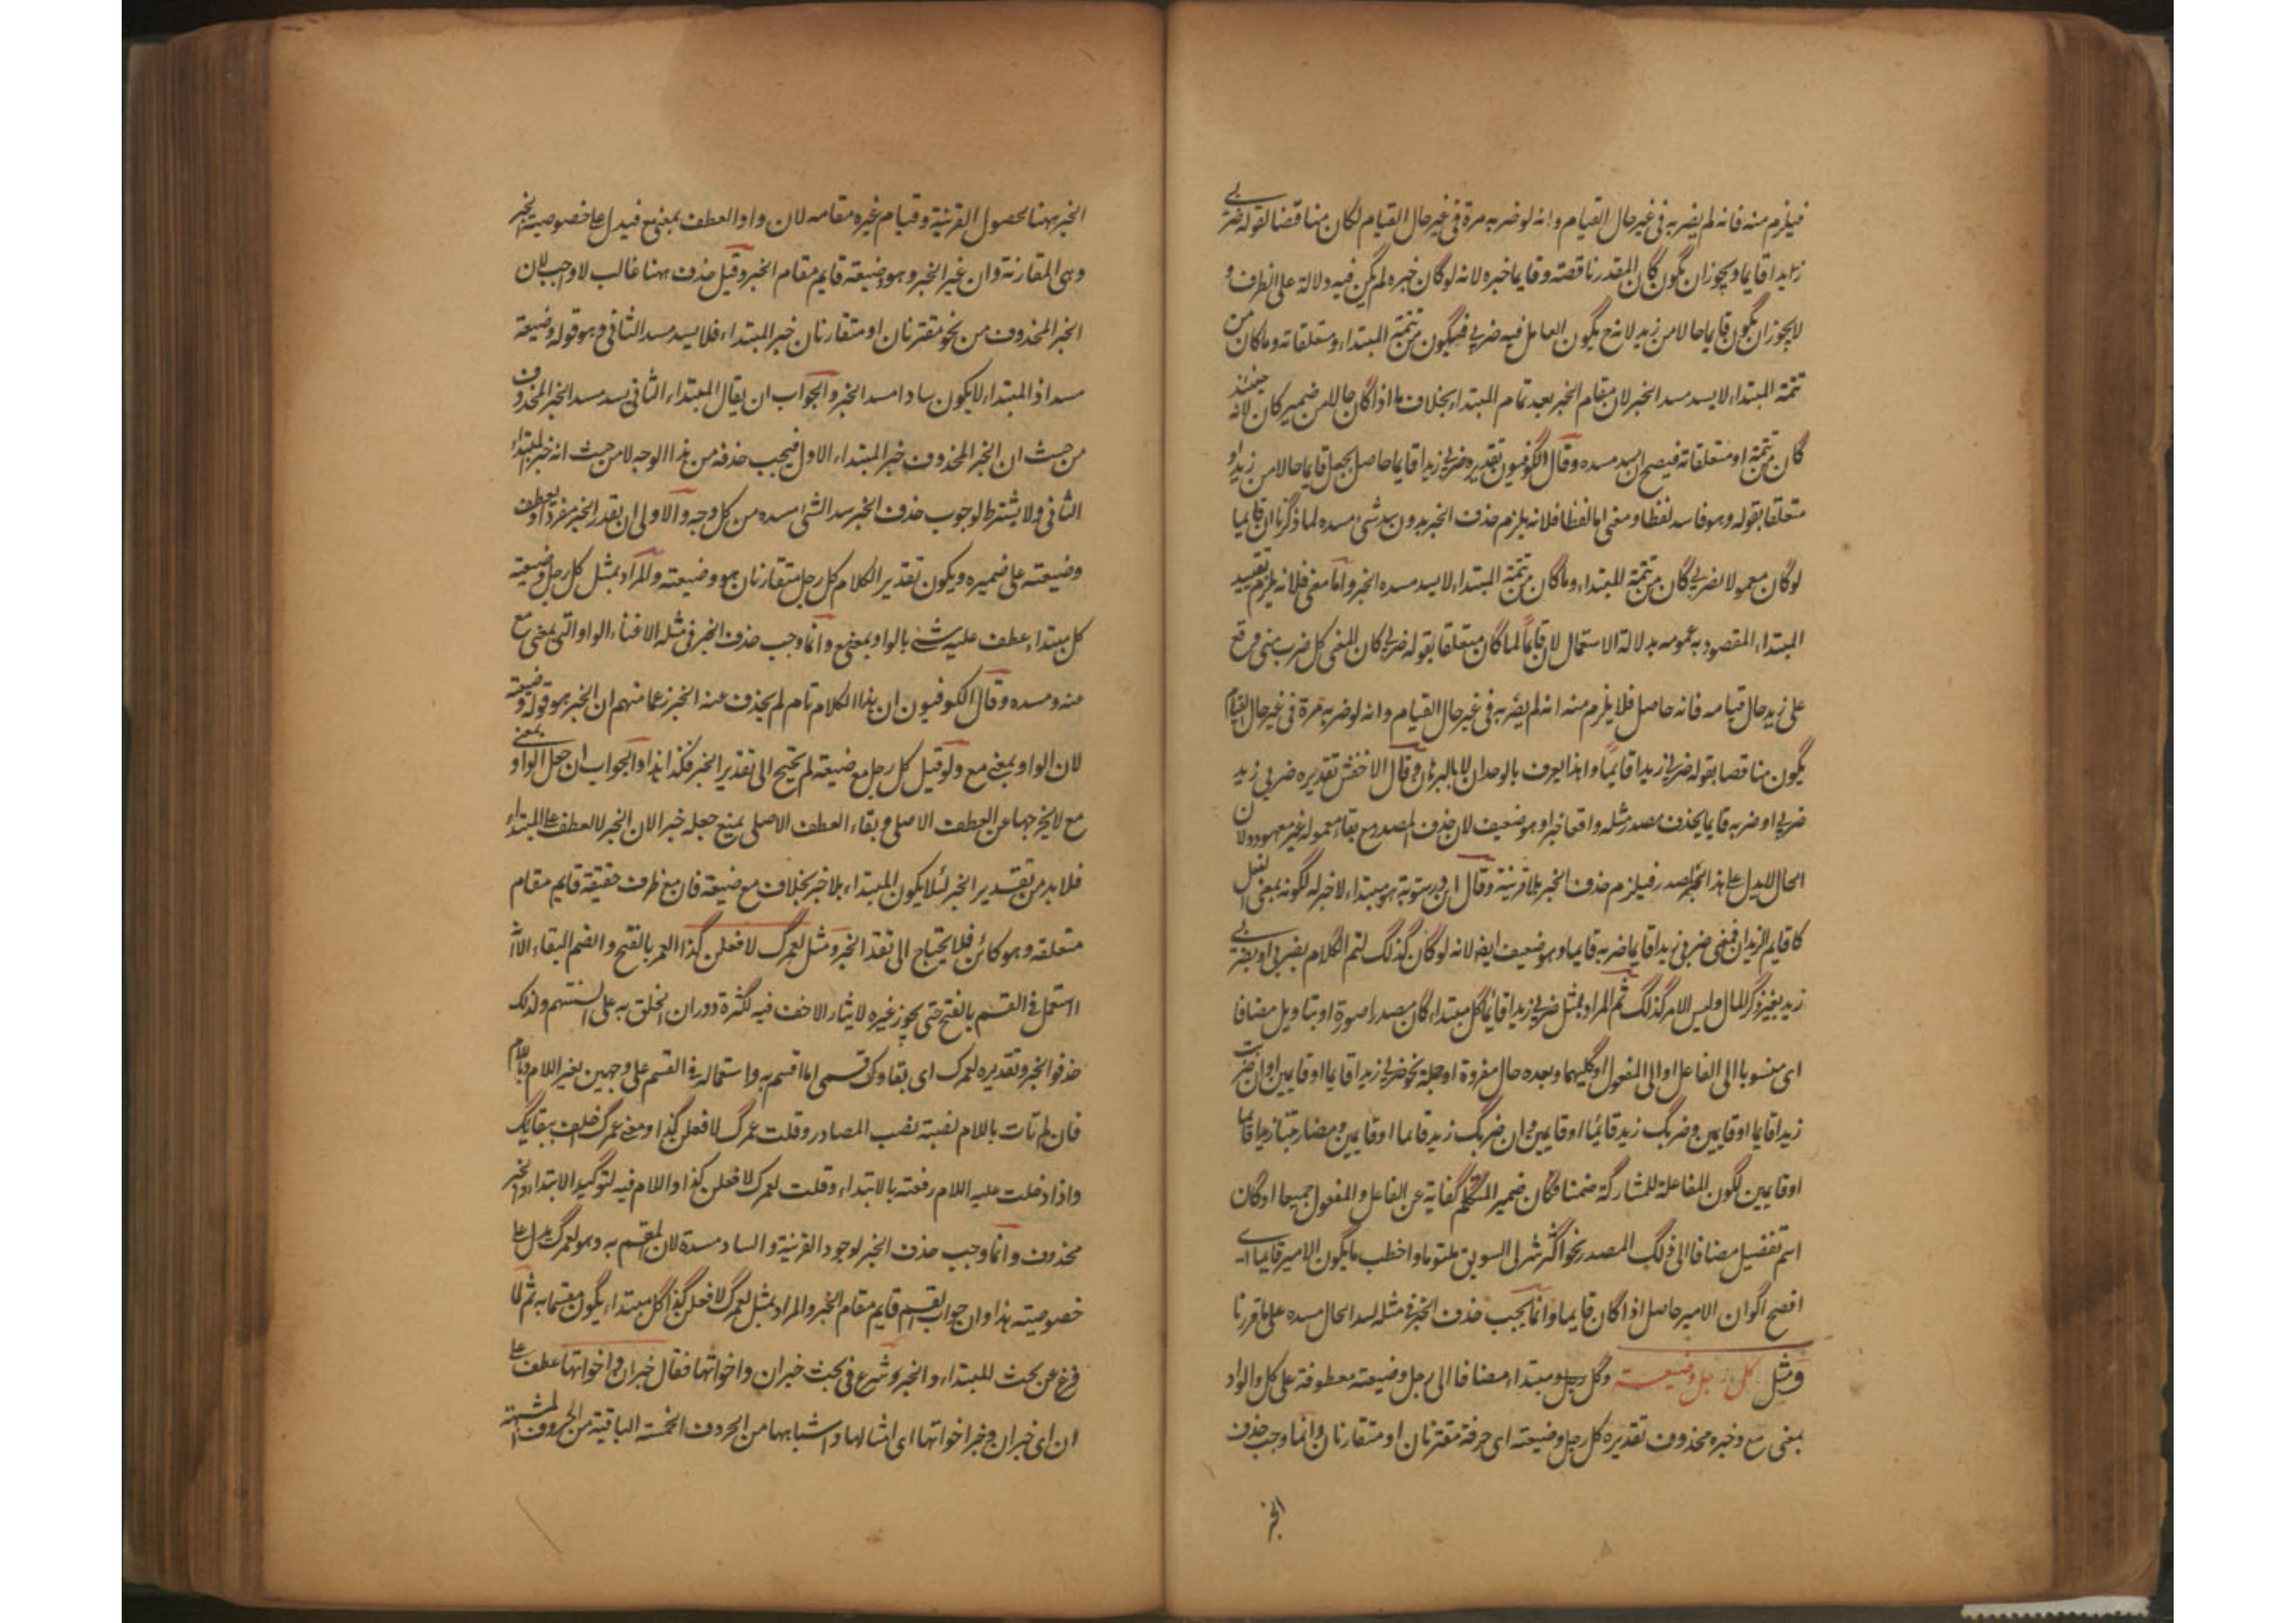 فيلزم منه فانه لم يضربه في غير حال القيام وانه لو ضربه مرة في غير حال القيام لكان مناقضا لقوله ضربي
زيدا قايما ويجوز ان يكون كان المقدر ناقصة وقايما خبره لانه لو كان خبره لم يكن فيه دلالة على الظرف و
لا يجوز ان يكون قايما حالا من زيد لانه ح يكون العامل فيه ضربي فيكون من تتمة المبتداء ومتعلقاته وما كان من
تتمة المبتداء لا يسد مسد الخبر لان مقام الخبر بعد تمام المبتداء بخلاف ما اذا كان حالا من ضمير كان لانه حينئذ
كان من تتمة او متعلقاته فيصح ان يسد مسده وقال الكوفيون تقديره ضربي زيدا قايما حاصل بجعل قايما حالا من زيد او
متعلقا بقوله وهو فاسد لفظا ومعنى اما لفظا فلانه يلزم حذف الخبر بدون سد شئ مسده لما ذكرنا ان قايما
لو كان معمولا لضربي كان من تتمة المبتداء وما كان من تتمة المبتداء لا يسد مسده الخبر واما معنى فلانه يلزم تقييد
المبتداء المقصود به عمومه بدلالة الاستعمال لان قايما لما كان متعلقا بقوله ضربي كان المعنى كل ضرب مني وقع
على زيد حال قيامه فانه حاصل فلا يلزم منه انه لم يضربه في غير حال القيام وانه لو ضربه مرة في غير حال القيام
يكون مناقضا بقوله ضربي زيدا قايما وهذا يعرف بالوجدان لا بالبرهان وقال الاخفش تقديره ضربي زيد
ضربي او ضربه قايما بحذف مصدر مثله واقعا خبرا وهو ضعيف لان حذف المصدر مع بقاء معموله غير معهود ولان
الحال لا يدل على هذا المصدر فيلزم حذف الخبر بلا قرينة وقال ابن درستويه هو مبتداء لا خبر له لكونه بمعنى الفعل
كاقايم الزيدان فمعنى ضربي زيدا قايما ضربه قايما وهو ضعيف ايضا لانه لو كان كذلك لتم الكلام بضربي او بضربي
زيد بغير ذكر الحال وليس الامر كذلك ثم المراد بمثل ضربي زيدا قايما كل مبتداء كان مصدرا صورة او بتاويل مضافا
اى منسوبا الى الفاعل او الى المفعول او كليهما وبعده حال مفردة او جملة نحو ضربي زيدا قايما او قايمين او ان ضربت
زيدا قايما او قايمين وضربك زيد قائما او قايمين وان ضربك زيد قايما او قايمين ومضاربتنا زيدا قايما
او قايمين لكون المفاعلة للمشاركة ضمنا فكان ضمير المتكلم كفاية عن الفاعل والمفعول جميعا او كان
اسم تفضيل مضافا الى ذلك المصدر نحو اكثر شربي السويق ملتوتا واخطب ما يكون الامير قايما اى
افصح اكوان الامير حاصل اذا كان قايما وانما يجب حذف الخبر في مثله لسد الحال مسده على ما قررنا
ومثل كل رجل وضيعته وكل رجل مبتداء مضافا الى رجل وضيعته معطوفة على كل والواو
بمعنى مع وخبره محذوف تقديره كل رجل وضيعته اى حرفة مقترنان او متقارنان وانما وجب حذف
الخبر
الخبر ههنا لحصول القرينة وقيام غيره مقامه لان واو العطف بمعنى مع فيدل على خصوصية الخبر
وهى المقارنة وان غير الخبر وهو وضيعته قايم مقام الخبر وقيل حذف ههنا غالب لا واجب لان
الخبر المحذوف من نحو مقترنان او متقارنان خبر المبتداء فلا يسد مسد الثاني وهو قوله وضيعته
مسد اذ المبتداء لا يكون سادا مسد الخبر والجواب ان يقال المبتداء الثاني يسد مسد الخبر المحذوف
من حيث ان الخبر المحذوف خبر المبتداء الاول فيجب حذفه من هذا الوجه لا من حيث انه خبر المبتداء
الثاني ولا يشترط لوجوب حذف الخبر سد الشئ مسده من كل وجه والاولى ان يقدر الخبر مفردا ويعطف
وضيعته على ضميره ويكون تقدير الكلام كل رجل متقارنان هو وضيعته والمراد بمثل كل رجل وضيعته
كل مبتداء عطف عليه شئ بالواو بمعنى مع وانما وجب حذف الخبر في مثله لاغناء الواو التى بمعنى مع
عنه ومسده وقال الكوفيون ان هذا الكلام تام لم يحذف عنه الخبر زعما منهم ان الخبر هو قوله وضيعته
لان الواو بمعنى مع ولو قيل كل رجل مع ضيعته لم يحتج الى تقدير الخبر فكذا هذا والجواب ان جعل الواو بمعنى
مع لا يخرجها عن العطف الاصلى وبقاء العطف الاصلى يمنع جعله خبرا لان الخبر لا يعطف على المبتداء
فلا بد من تقدير الخبر لئلا يكون المبتداء بلا خبر بخلاف مع ضيعة فان مع ظرف حقيقة قايم مقام
متعلقه وهو كائن فلا يحتاج الى تقدير الخبر ومثل لعمرك لافعلن كذا العمر بالفتح والضم البقاء الا ان
استعمل في القسم بالفتح حتى يجوز غيره لايثار الاخف فيه لكثرة دوران الحلق به على السنتهم ولذلك
حذفوا الخبر وتقديره لعمرك اى بقاوك قسمى اى ما اقسم به واستعماله في القسم على وجهين بغير اللام وباللام
فان لم تات باللام نصبته نصب المصادر وقلت عمرك لافعلن كذا ومعنى عمرك احلف ببقائك
واذا دخلت عليه اللام رفعته بالابتداء وقلت لعمرك لافعلن كذا واللام فيه لتوكيد الابتداء والخبر
محذوف وانما وجب حذف الخبر لوجود القرينة والساد مسده لان المقسم به وهو لعمرك يدل على
خصوصيته هذا وان جواب القسم قايم مقام الخبر والمراد بمثل لعمرك لافعلن كذا كل مبتداء يكون مقسما به ثم لما
فرغ عن بحث المبتداء والخبر وشرع في بحث خبر ان واخواتها فقال خبر ان واخواتها عطف على
ان اى خبر ان وخبر اخواتها اى امثالها واشباهها من الحروف الخمسة الباقية من الحروف المشبهة